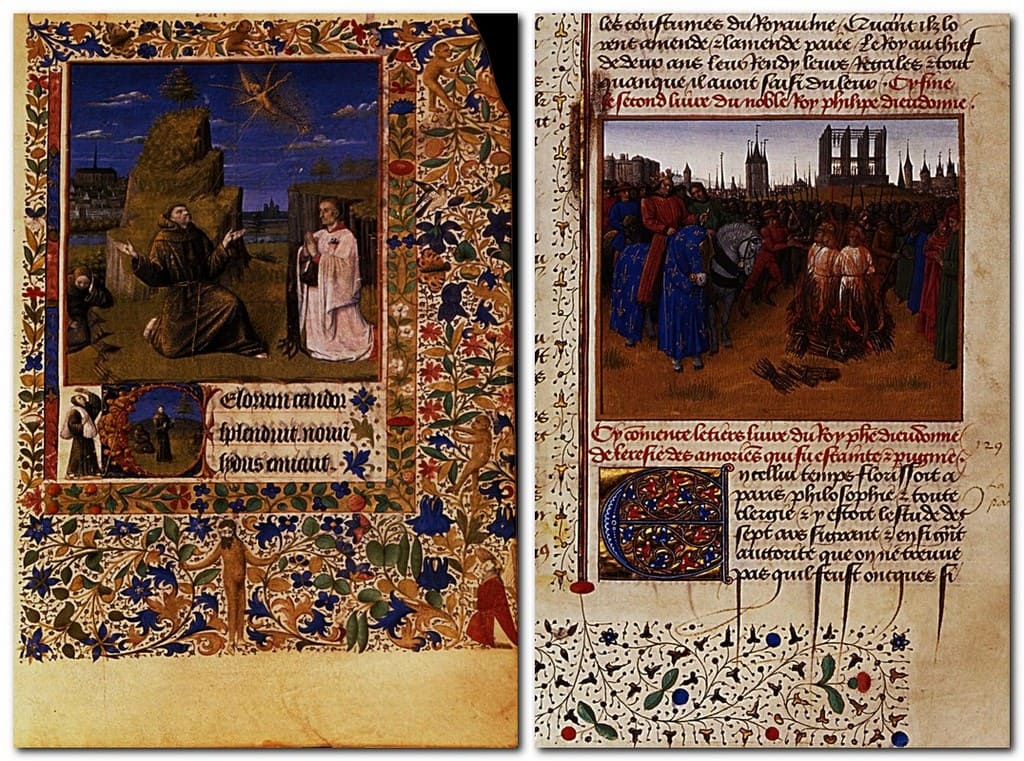 Celorum candor
splenduit. nouū
sydus emicuit.
les coustumes du Royaume. Quant ilz lo
rent amende & lamende paiee. Le Roy au chief
de deux ans leur Rendy leurs Regales & tout
quanque il auoit saisi du leur. Cy fine
le second liure du noble Roy phelipe dieudonne.
Cy cōmence le tiers liure du Roy phē dieudonne
de leresie des amories qui fu estainte & pugnie.
En cellui temps florissoit a
paris philosophie & toute
clergie & y estoit lestude des
sept ars si grant & en si grāt
auttorite que on ne treuue
pas quil feust oncques si
129